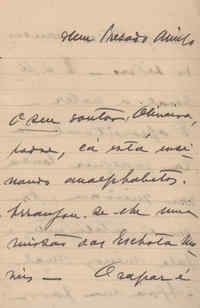 Meu Prezado Amigo
O seu doutor, Oliveira,
, cá está ensi
nando analphabetos.
Arranjou-se-lhe uma
missão das Escholas Mo
veis — O rapaz é